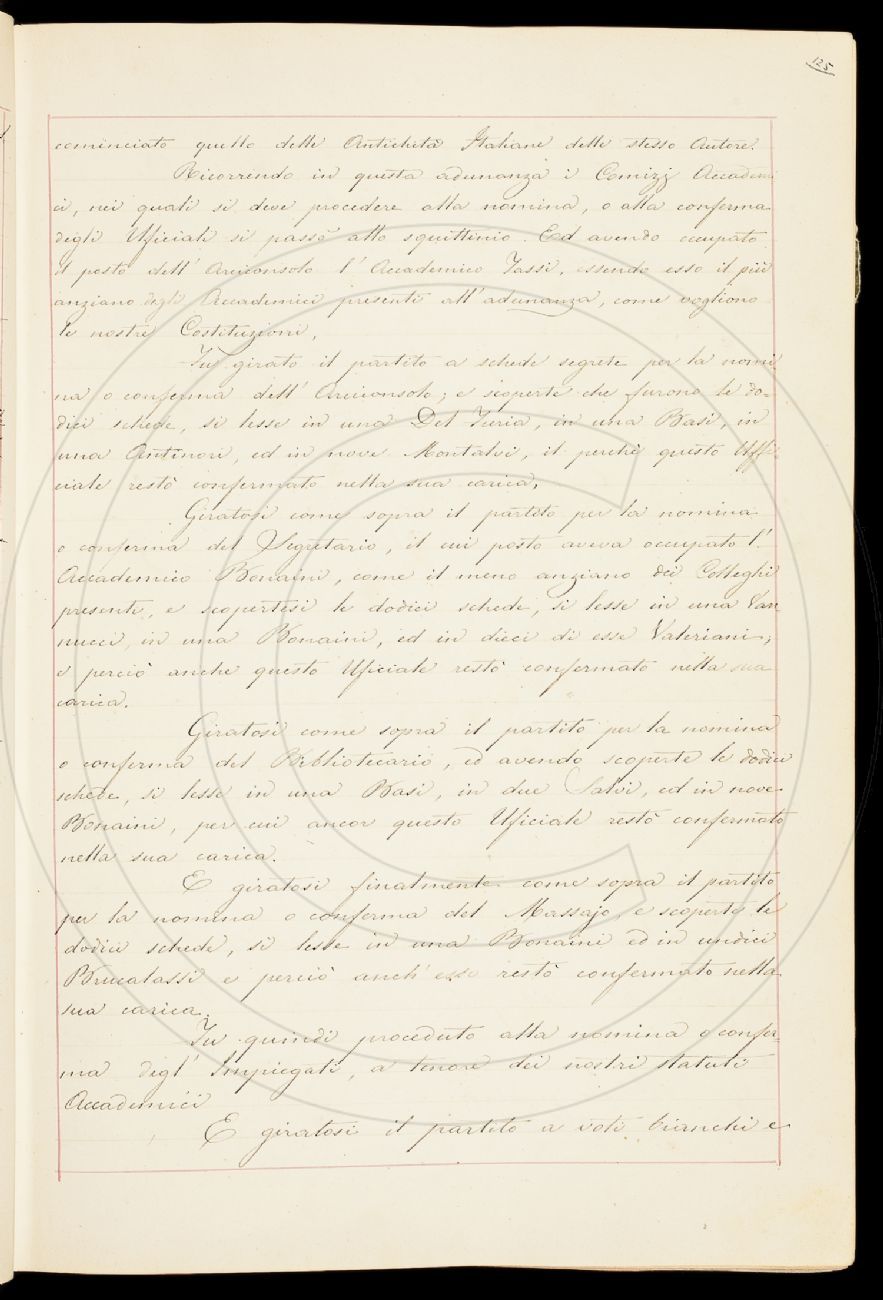 125
cominciato quello delle Antichità Italiane dello stesso Autore.
Ricorrendo in questa adunanza i Comizj Accademi
ci, nei quali si deve procedere alla nomina, o alla conferma
degli Uficiali si passò allo squittinio. Ed avendo occupato
il posto dell' Arciconsolo l' Accademico Tassi, essendo esso il più
anziano degli Accademici presenti all' adunanza, come vogliono
le nostre Costituzioni,
Fu girato il partito a schede segrete per la nomi
na o conferma dell' Arciconsolo; e scoperte che furono le do=
dici schede, si lesse in una Del Furia, in una Basi, in
una Antinori, ed in nove Montalvi, il perchè questo Uffi
ciale restò confermato nella sua carica,
Giratosi come sopra il partito per la nomina
o conferma del Segretario, il cui posto aveva occupato l'
Accademico Bonaini, come il meno anziano dei Colleghi
presente, e scopertesi le dodici schede, si lesse in una Van
nucci, in una Bonaini, ed in dieci di esse Valeriani,
e perciò anche questo Uficiale restò confermato nella sua
carica.
Giratosi come sopra il partito per la nomina
o conferma del Bibliotecario, ed avendo scoperte le dodici
schede, si lesse in una Basi, in due Salvi, ed in nove
Bonaini, per cui ancor questo Uficiale restò confermato
nella sua carica.
E giratosi finalmente come sopra il partito
per la nomina o conferma del Massajo, e scoperte le
dodici schede, si lesse in una Bonaini ed in undici
Brucalassi e perciò anch' esso restò confermato nella
sua carica.
Fu quindi proceduto alla nomina o confer=
ma degl' Impiegati, a tenore dei nostri statuti
Accademici
E giratosi il partito a voti bianchi e